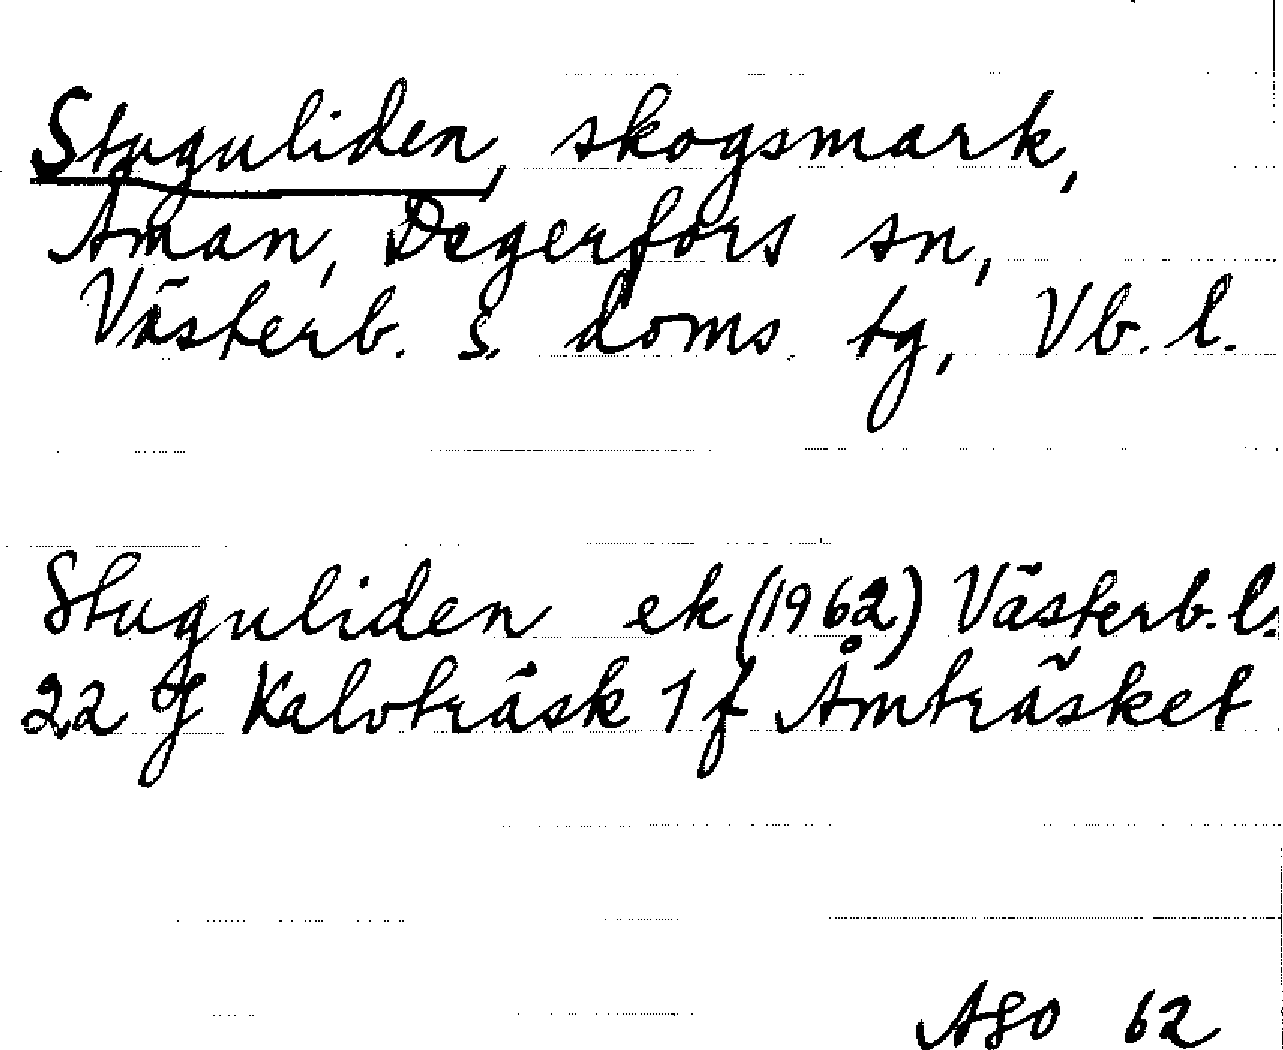 Stuguliden, skogsmark,
Åman, Degerfors sn,
Västerb. s. doms tg, Vb. l.
Stuguliden ek (1962) Västerb. l.
22 g Kalvträsk 1 f Åmträsket
62